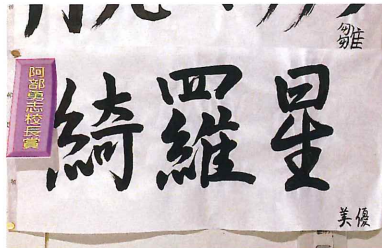 雛
阿部勇志校長賞
綺羅星
美優